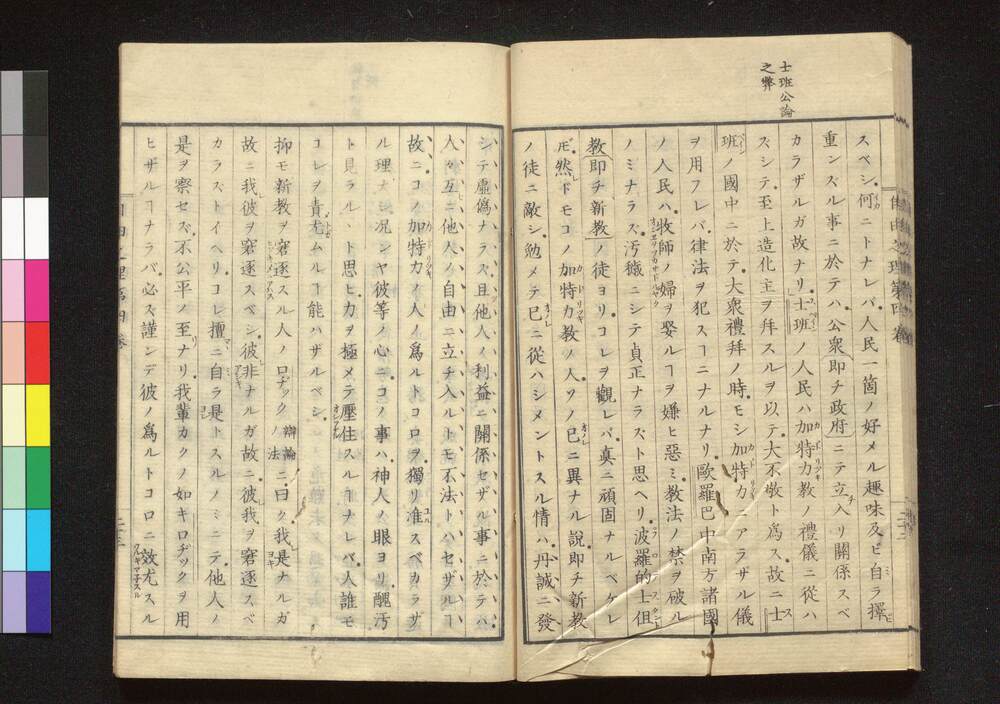 士班公論
之弊
スベシ何ニトナレバ人民一箇ノ好メル趣味及ビ自ラ擇ビ
重ンズル事ニ於テハ公衆即チ政府ニテ立入リ關係スベ
カラザルガ故ナリ士班ノ人民ハ加特力教ノ禮儀ニ從ハ
ズシテ至上造化主ヲ拜スルヲ以テ大不敬ト爲ス故ニ士
班ノ國中ニ於テ大衆禮拜ノ時モシ加特力ニアラザル儀
ヲ用フレバ律法ヲ犯スヿニナルナリ歐羅巴中南方諸國
ノ人民ハ牧師ノ婦ヲ娶ルヿヲ嫌ヒ惡ミ教法ノ禁ヲ破ル
ノミナラズ汚穢ニシテ貞正ナラズト思ヘリ波羅的士徂
教即チ新教ノ徒ヨリコレヲ觀レバ眞ニ頑固ナルベケレ
𪜈然レドモコノ加特力教ノ人ソノ已ニ異ナル説即チ新教
ノ徒ニ敵シ勉メテ已ニ從ハシメントスル情ハ丹誠ニ發
シテ虚僞ナラズ且他人ノ利益ニ關係セザル事ニ於テハ
人々互ニ他人ノ自由ニ立チ入ルトモ不法トハセザルヿ
故ニコノ加特力ノ人ノ爲ルトコロヲ獨リ准スベカラザ
ル理ナシ況ンヤ彼等ノ心ニコノ事ハ神人ノ眼ヨリ醜汚
ト見ラルヽト思ヒ力ヲ極メテ壓住スルヿナレバ人誰モ
コレヲ責尤ムルヿ能ハザルベシ
抑モ新教ヲ窘逐スル人ノロヂック辯論ノ法ニ曰ク我是ナルガ
故ニ我彼ヲ窘逐スベシ彼非ナルガ故ニ彼我ヲ窘逐スベ
カラズトイヘリコレ擅ニ自ラ是トスルノミニテ他人ノ
是ヲ察セズ不公平ノ至ナリ我輩カクノ如キロヂックヲ用
ヒザルヿナラバ必ズ謹ンデ彼ノ爲ルトコロニ效尤スル